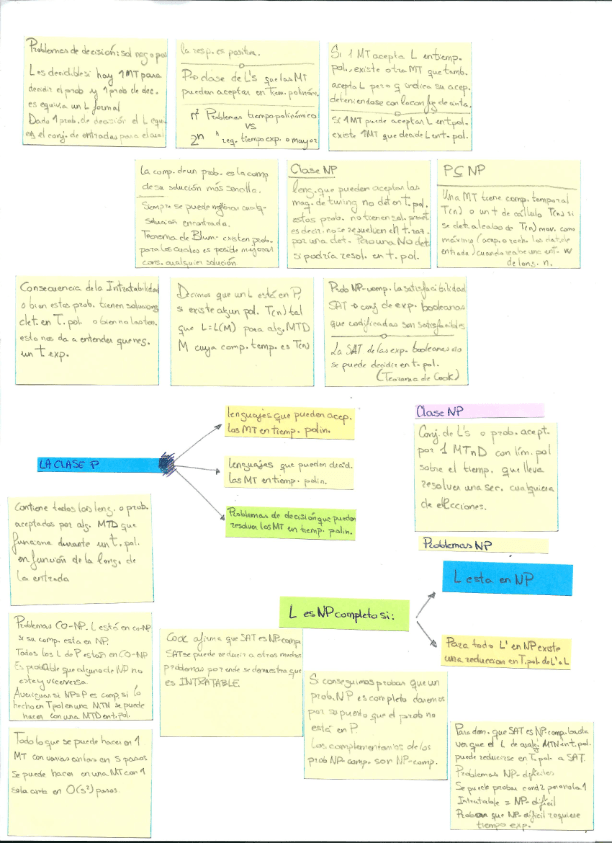 Problemas de decisión: sol neg o pos
L es decidible si hay 1 MT para
decidir el prob y 1 prob de dec.
es equiv a un L formal
Dado 1 prob. de decisión el L equi
es el conj. de entradas para el cual
la resp. es positiva.
P:o clase de L's que las MT
pueden aceptar en tiem. polinóm.
n² Problemas tiempo polinómico
vs
2ⁿ " req. tiempo exp. o mayor
Si 1 MT acepta L en tiemp.
pol. existe otra MT que tamb.
acepta L pero q indica su acep.
deteniéndose
Si 1 MT puede aceptar L en t. pol.
existe 1 MT que decide L en t. pol.
La comp. de un prob. es la comp
de su solución más sencilla.
Siempre se puede
solución encontrada.
Teorema de Blum: existen prob.
para los cuales es posible mejorar
cualquier solución
Clase NP
leng. que pueden aceptar las
maq. de turing no det en t. pol.
estos prob. no tienen sol.
es decir no se resuelven en t.
por una det. Pero una No det
si podría resol. en t. pol.
P ⊆ NP
Una MT tiene comp. temporal
T(n) o un t de cálculo T(n) si
se det. al cabo de T(n) mov. como
máximo
entrada cuando recibe una ent. w
de long. n.
Consecuencia de la Intratabilidad
o bien estos prob. tienen soluciones
det. en T. pol o bien no las tien.
esto nos da a entender que req.
un t exp.
Decimos que un L está en P,
si existe algun pol. T(n) tal
que L=L(M) para alg. MTD
M cuya comp. temp. es T(n)
Prob NP-comp. La satisfacibilidad
SAT → conj de exp. booleanas
que codificadas son satisfacibles
La SAT de las exp. booleanas no
se puede decidir en t. pol.
(Teorema de Cook)
LA CLASE P
lenguajes que pueden acep.
las MT en tiemp. polin.
lenguajes que pueden decid.
las MT en tiemp. polin.
Problemas de decisión que pueden
resolver las MT en tiemp. polin.
Clase NP
Conj. de L's o prob. acept.
por 1 MTnD con lím. pol
sobre el tiemp. que lleva
resolver una sec. cualquiera
de elecciones.
Problemas NP
Contiene todos los leng. o prob.
aceptados por alg. MTD que
funcione durante un t. pol.
en función de la long. de
la entrada
L es NP completo si:
L esta en NP
Para todo L' en NP existe
una reduccion en T. pol de L' a L
Problemas CO-NP. L está en co-NP
si su comp. esta en NP.
Todos los L de P están en CO-NP
Es probable que alguno de NP no
este y viceversa.
Averiguar si NP=P es comp. si lo
hecho en T pol en una MTN se puede
hacer con una MTD en t. pol.
Cook afirma que SAT es NP-comp.
SAT se puede reducir a otros muchos
problemas por ende se demuestra que
es INTRATABLE
Si conseguimos probar que un
prob. NP es completo daremos
por supuesto que el prob no
está en P
Los complementarios de los
prob NP-comp. son NP-comp.
Todo lo que se puede hacer en 1
MT con varias cintas en s pasos
se puede hacer en una MT con 1
sola cinta en O(s²) pasos.
Para dem. que SAT es NP-comp. basta
ver que el L de cualq. MTN en t. pol.
puede reducirse en T. pol a SAT.
Problemas NP-difíciles
Se puede probar cond 2 pero no la 1
Intratable = NP-difícil
Probar que NP-difícil requiere
tiempo exp.